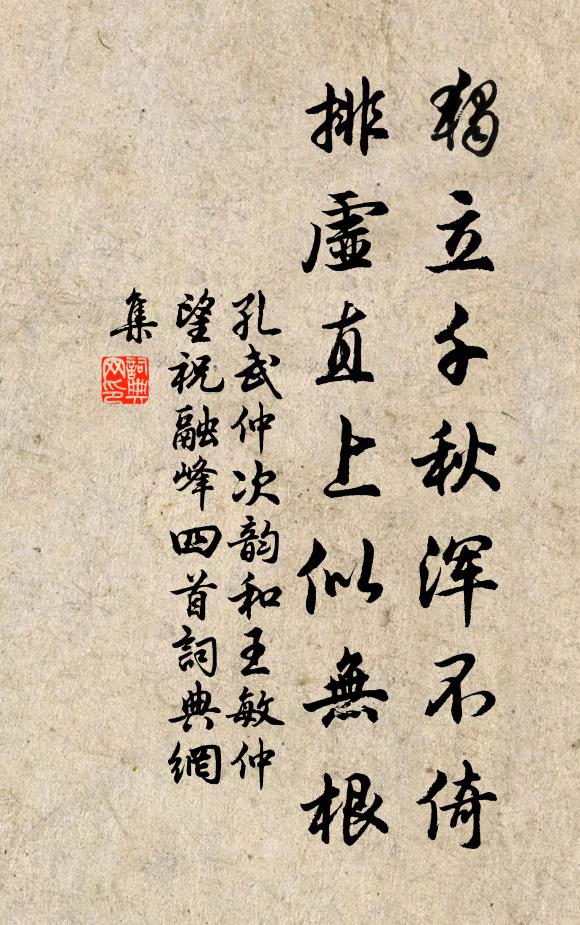 獨立千秋浑不倚
排虛直上似無根
孔武仲次韵和王敏仲
望祝融峰四首詞典網
集
詞典
网印